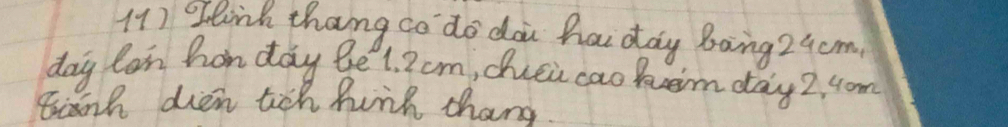 11) Hình thang có độ dài hai đáy bằng 24cm,
đáy lớn hơn đáy bé 1.2cm, chiều cao kém đáy 2,4cm
tính diện tích hình thang.